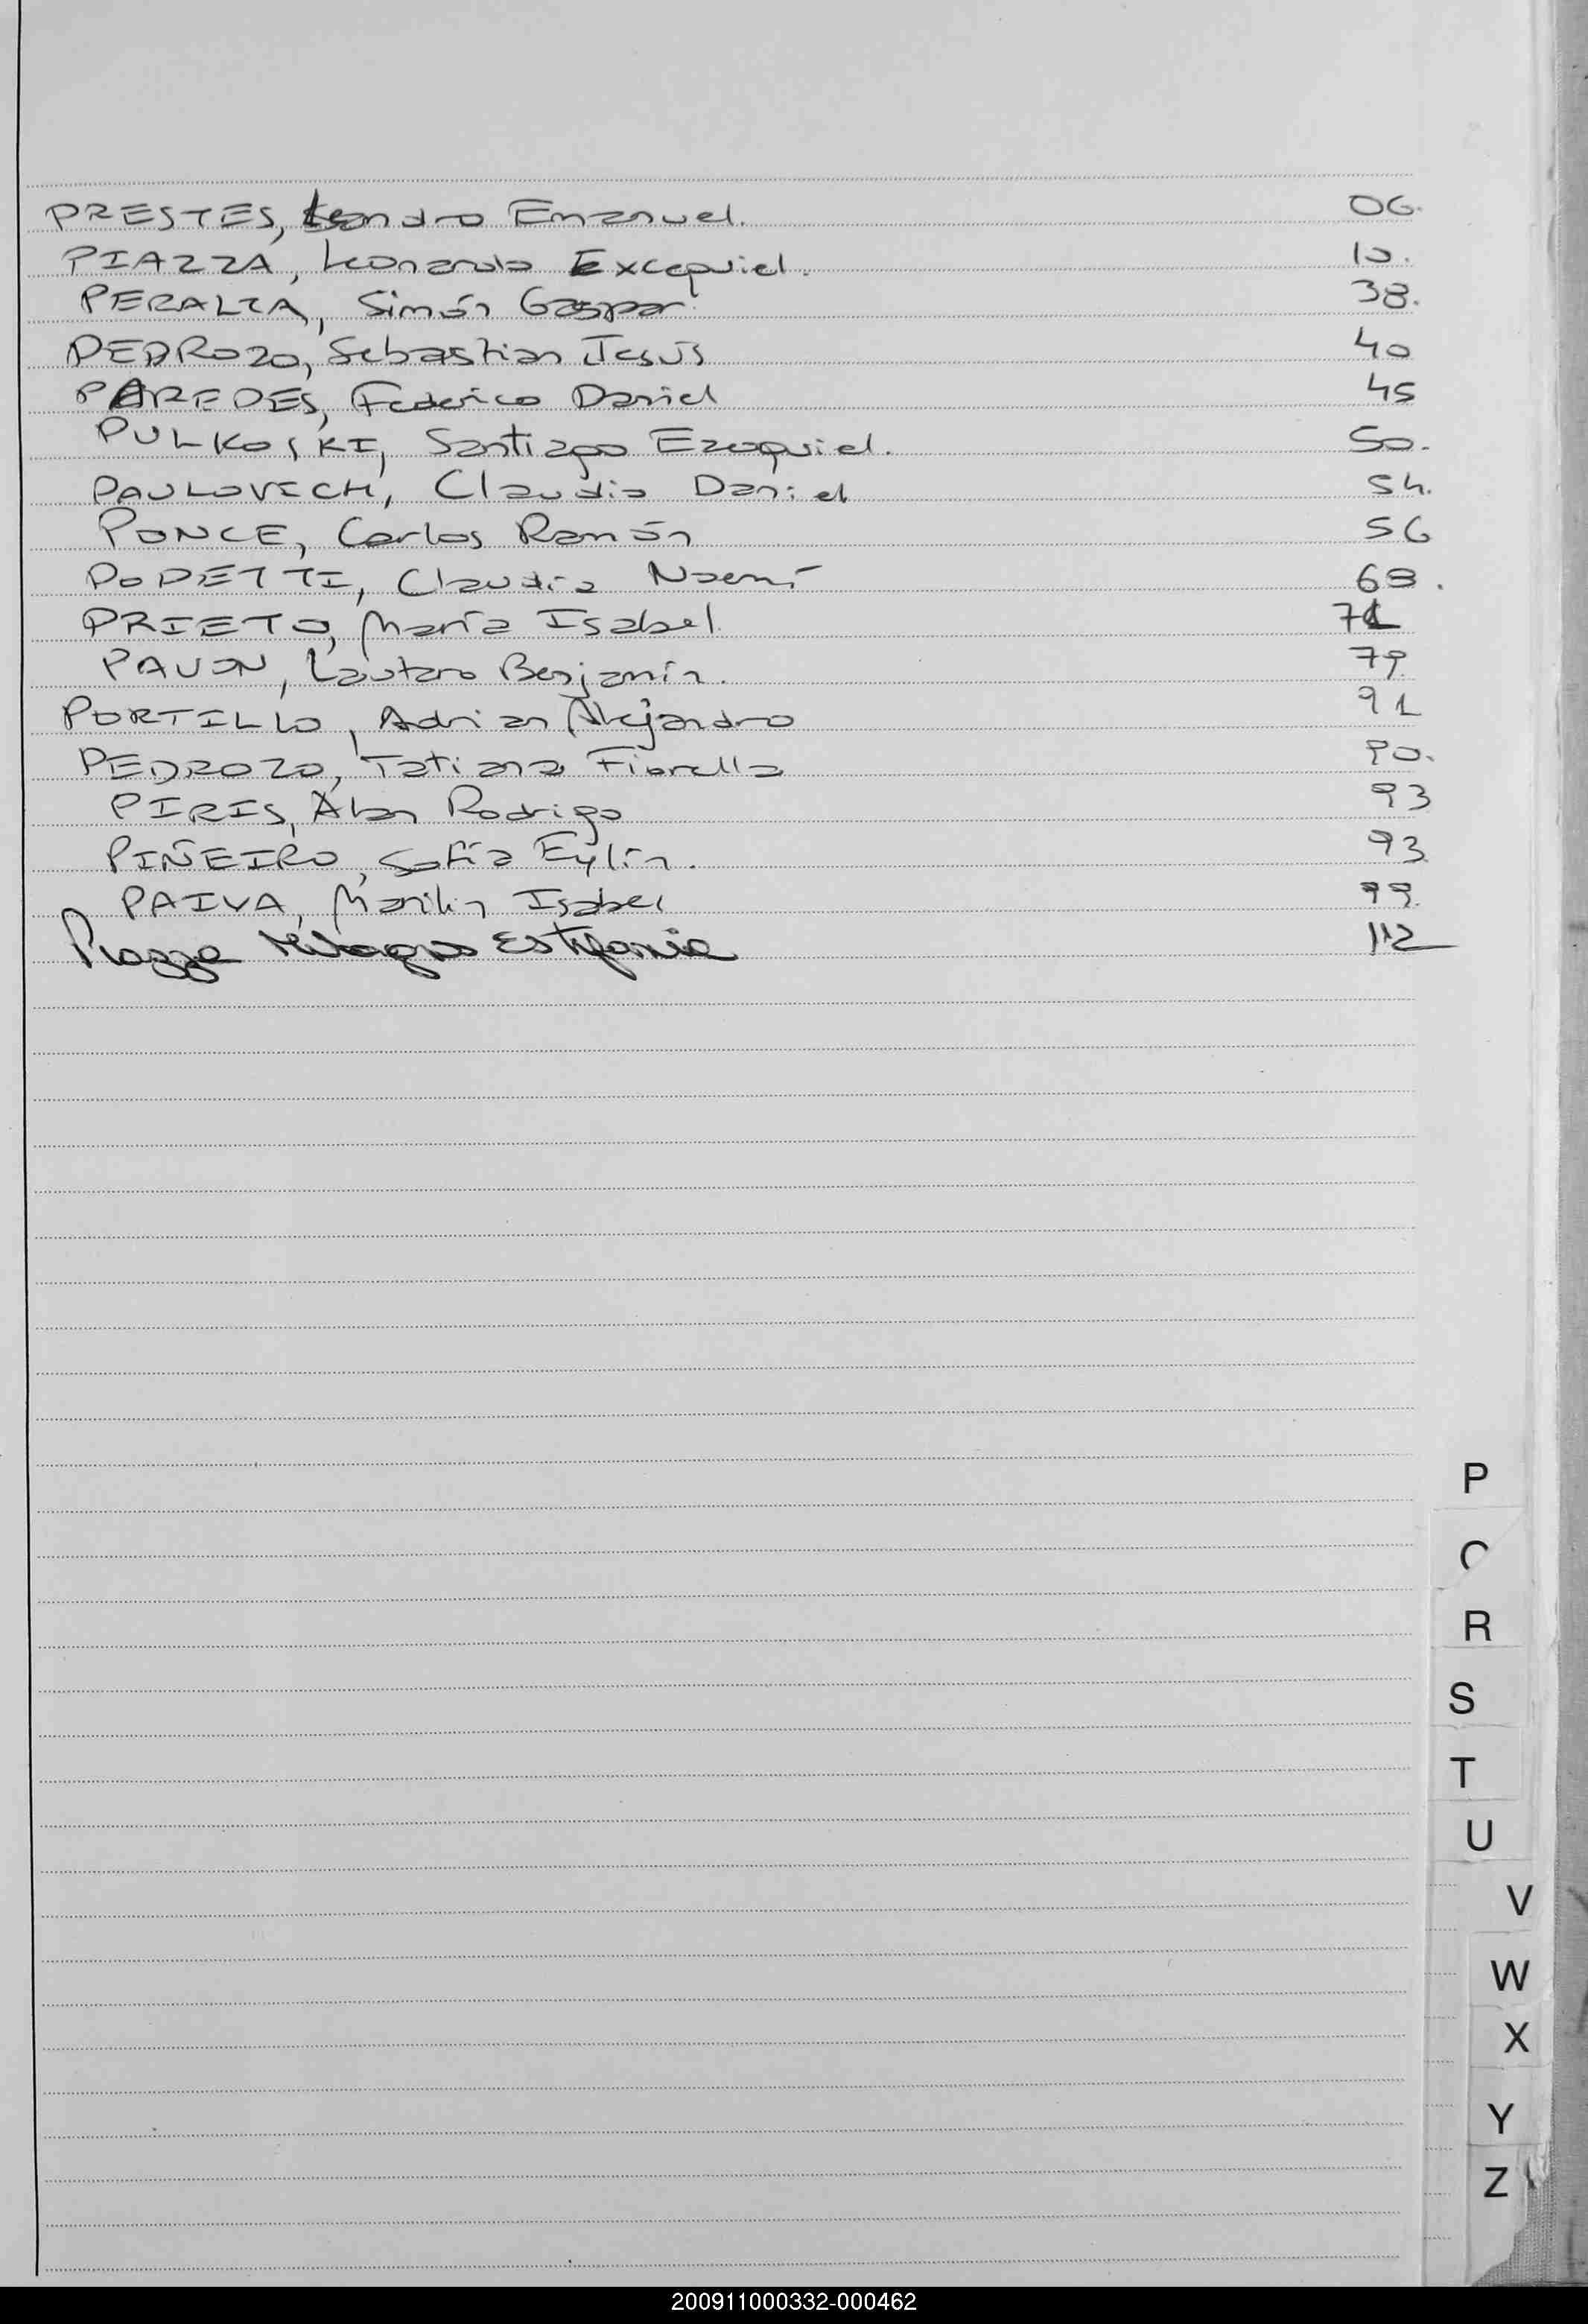 PRESTES, Leandro Emanuel. 06.
PIAZZA, Leonardo Excequiel. 10.
PERALTA, Simón Gaspar. 38.
PEDROZO, Sebastian Jesús 40
PAREDES, Federico Daniel 45
PULKOSKI, Santiago Ezequiel. 50.
PAULOVICH, Claudio Daniel 54.
PONCE, Carlos Ramón 56
PODETTI, Claudia Noemí 69.
PRIETO, María Isabel. 71
PAVON, Lautaro Benjamín. 79.
PORTILLO, Adrian Alejandro 91
PEDROZO, Tatiana Fiorella 90.
PIRIS, Alan Rodrigo 93
PIÑEIRO, Sofía Eylin. 93.
PAIVA, Marilin Isabel 99.
Piazza Milagros Estefania 112
P
R
S
T
U
V
W
X
Y
Z
200911000332-000462